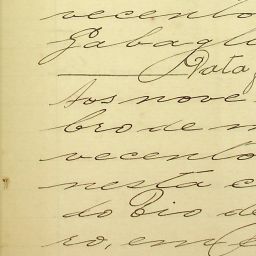 vecento
Gabagl
Data
Aos nove
bro de n
vecento
nesta c
do Rio de
ro, em